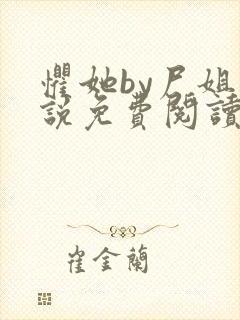 懼她by尸姐
說免費閱讀
崔金蘭